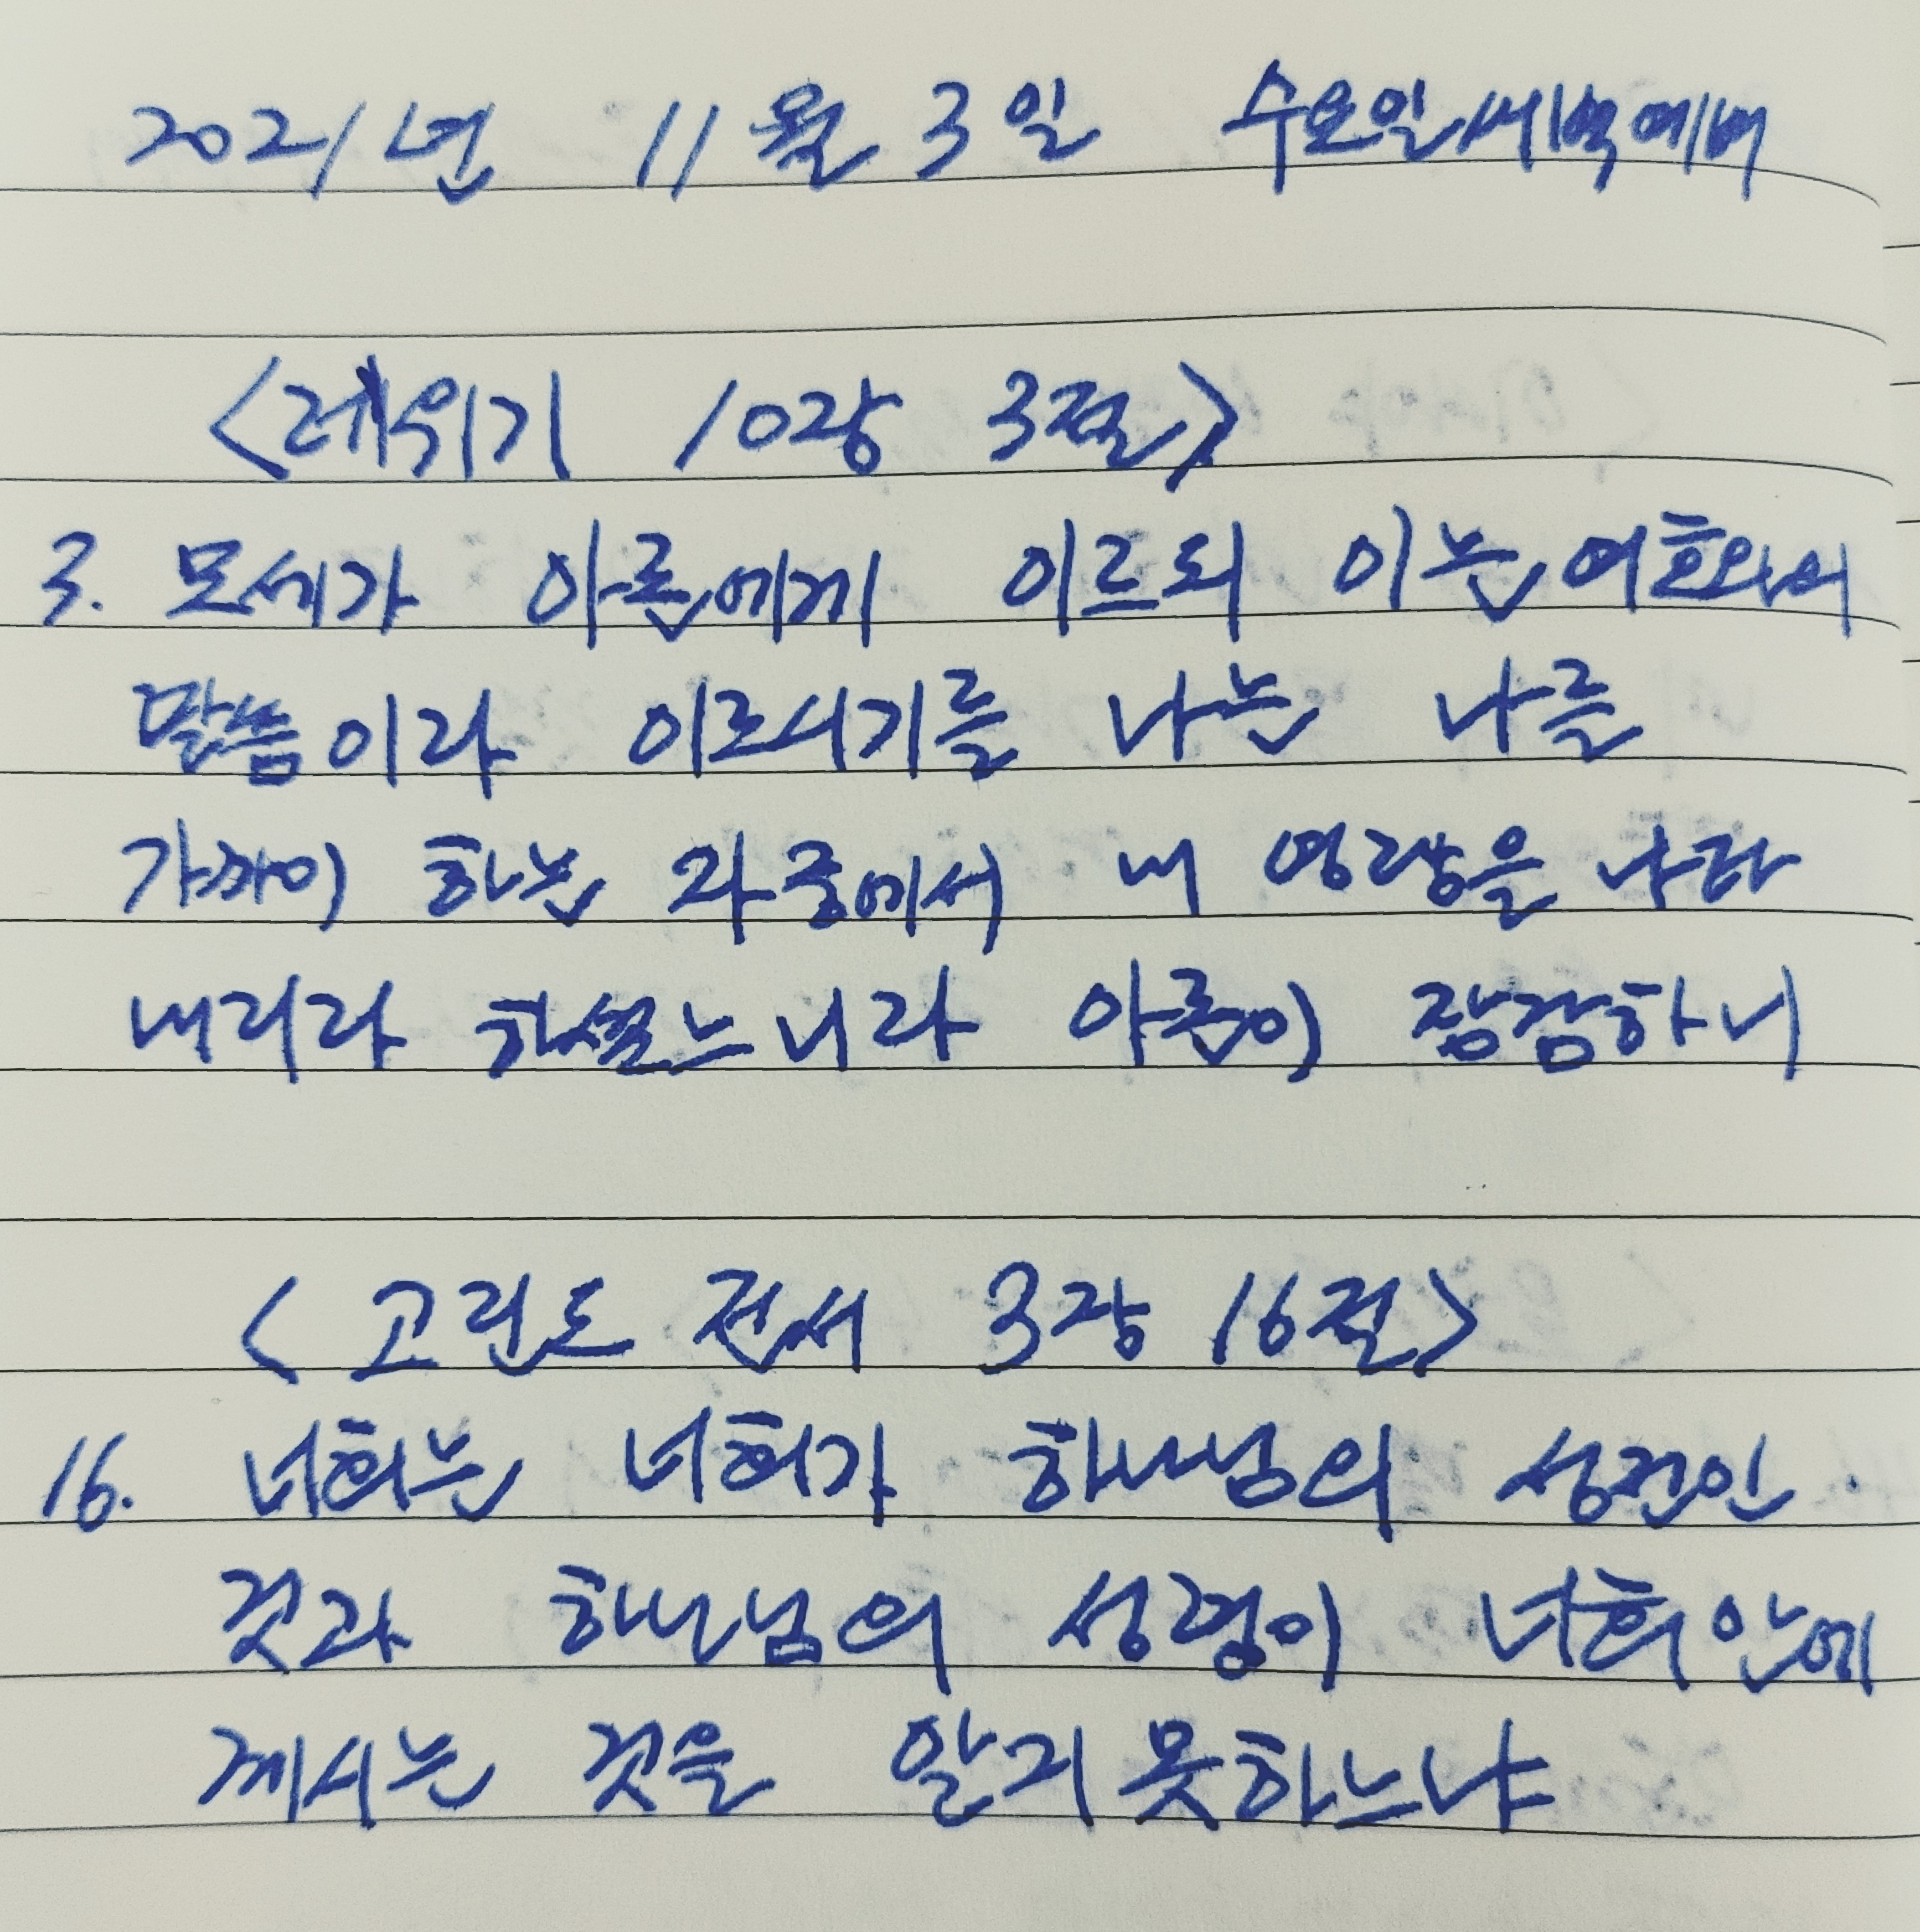 2021년 11월 3일 수요일새벽예배
<레위기 10장 3절>
3. 모세가 아론에게 이르되 이는 여호와의
말씀이라 이르시기를 나는 나를
가까이 하는 자중에서 내 영광을 나타
내리라 하셨느니라 아론이 잠잠하니
<고린도 전서 3장 16절>
16. 너희는 너희가 하나님의 성전인
것과 하나님의 성령이 너희 안에
계시는 것을 알지 못하느냐